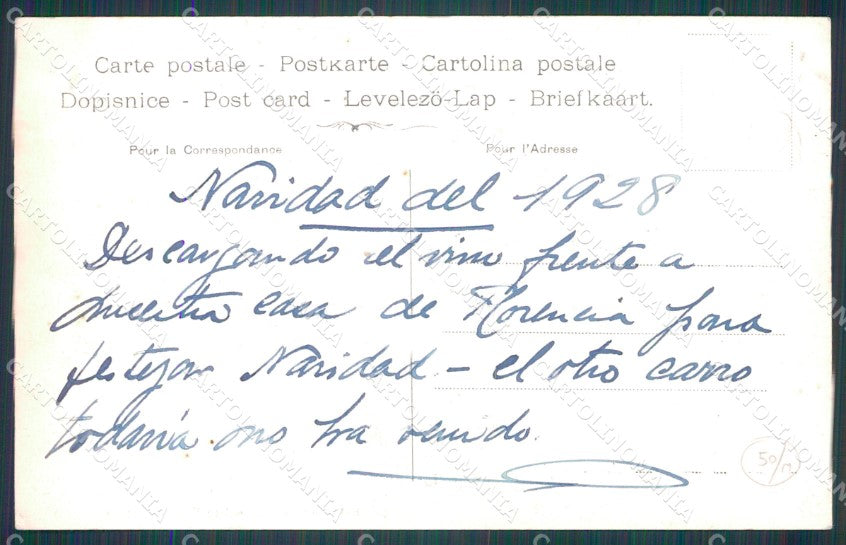 Carte postale - Postkarte - Cartolina postale
Dopisnice - Post card - Levelező-Lap - Briefkaart.
Pour la Correspondance
Pour l'Adresse
Navidad del 1928
Descargando el vino frente a
nuestra casa de Florencia para
festejar Navidad - el otro carro
todavía no ha venido.
50/12
CARTOLINOMANIA